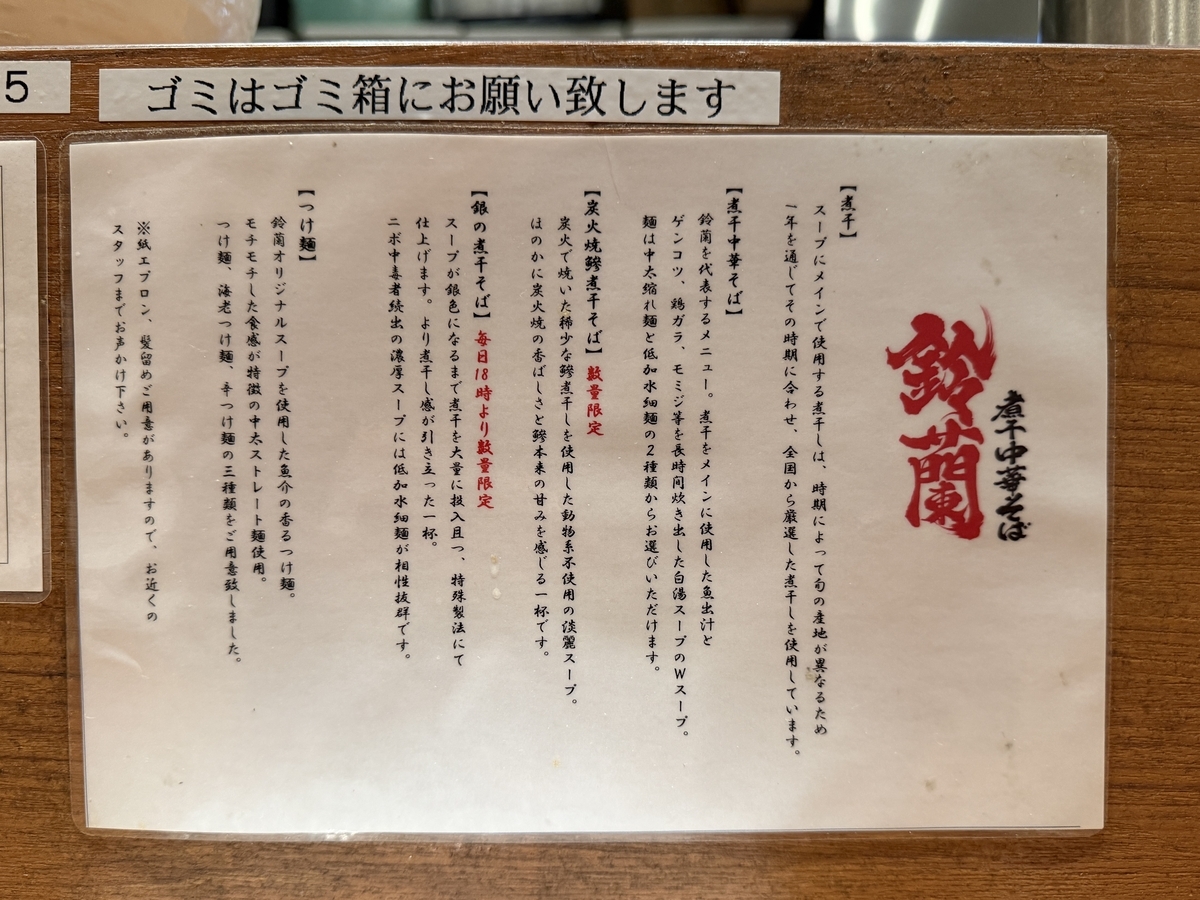 5
ゴミはゴミ箱にお願い致します
煮干中華そば
鈴蘭
【煮干】
スープにメインで使用する煮干しは、時期によって旬の産地が異なるため
一年を通じてその時期に合わせ、全国から厳選した煮干しを使用しています。
【煮干中華そば】
鈴蘭を代表するメニュー。煮干をメインに使用した魚出汁と
ゲンコツ、鶏ガラ、モミジ等を長時間炊き出した白湯スープのWスープ。
麺は中太縮れ麺と低加水細麺の2種類からお選びいただけます。
【炭火焼鰺煮干そば】数量限定
炭火で焼いた稀少な鰺煮干しを使用した動物系不使用の淡麗スープ。
ほのかに炭火焼の香ばしさと鰺本来の甘みを感じる一杯です。
【銀の煮干そば】毎日18時より数量限定
スープが銀色になるまで煮干を大量に投入且つ、特殊製法にて
仕上げます。より煮干し感が引き立った一杯。
ニボ中毒者続出の濃厚スープには低加水細麺が相性抜群です。
【つけ麺】
鈴蘭オリジナルスープを使用した魚介の香るつけ麺。
モチモチした食感が特徴の中太ストレート麺使用。
つけ麺、海老つけ麺、辛つけ麺の三種類をご用意致しました。
※紙エプロン、髪留めご用意がありますので、お近くの
スタッフまでお声かけ下さい。